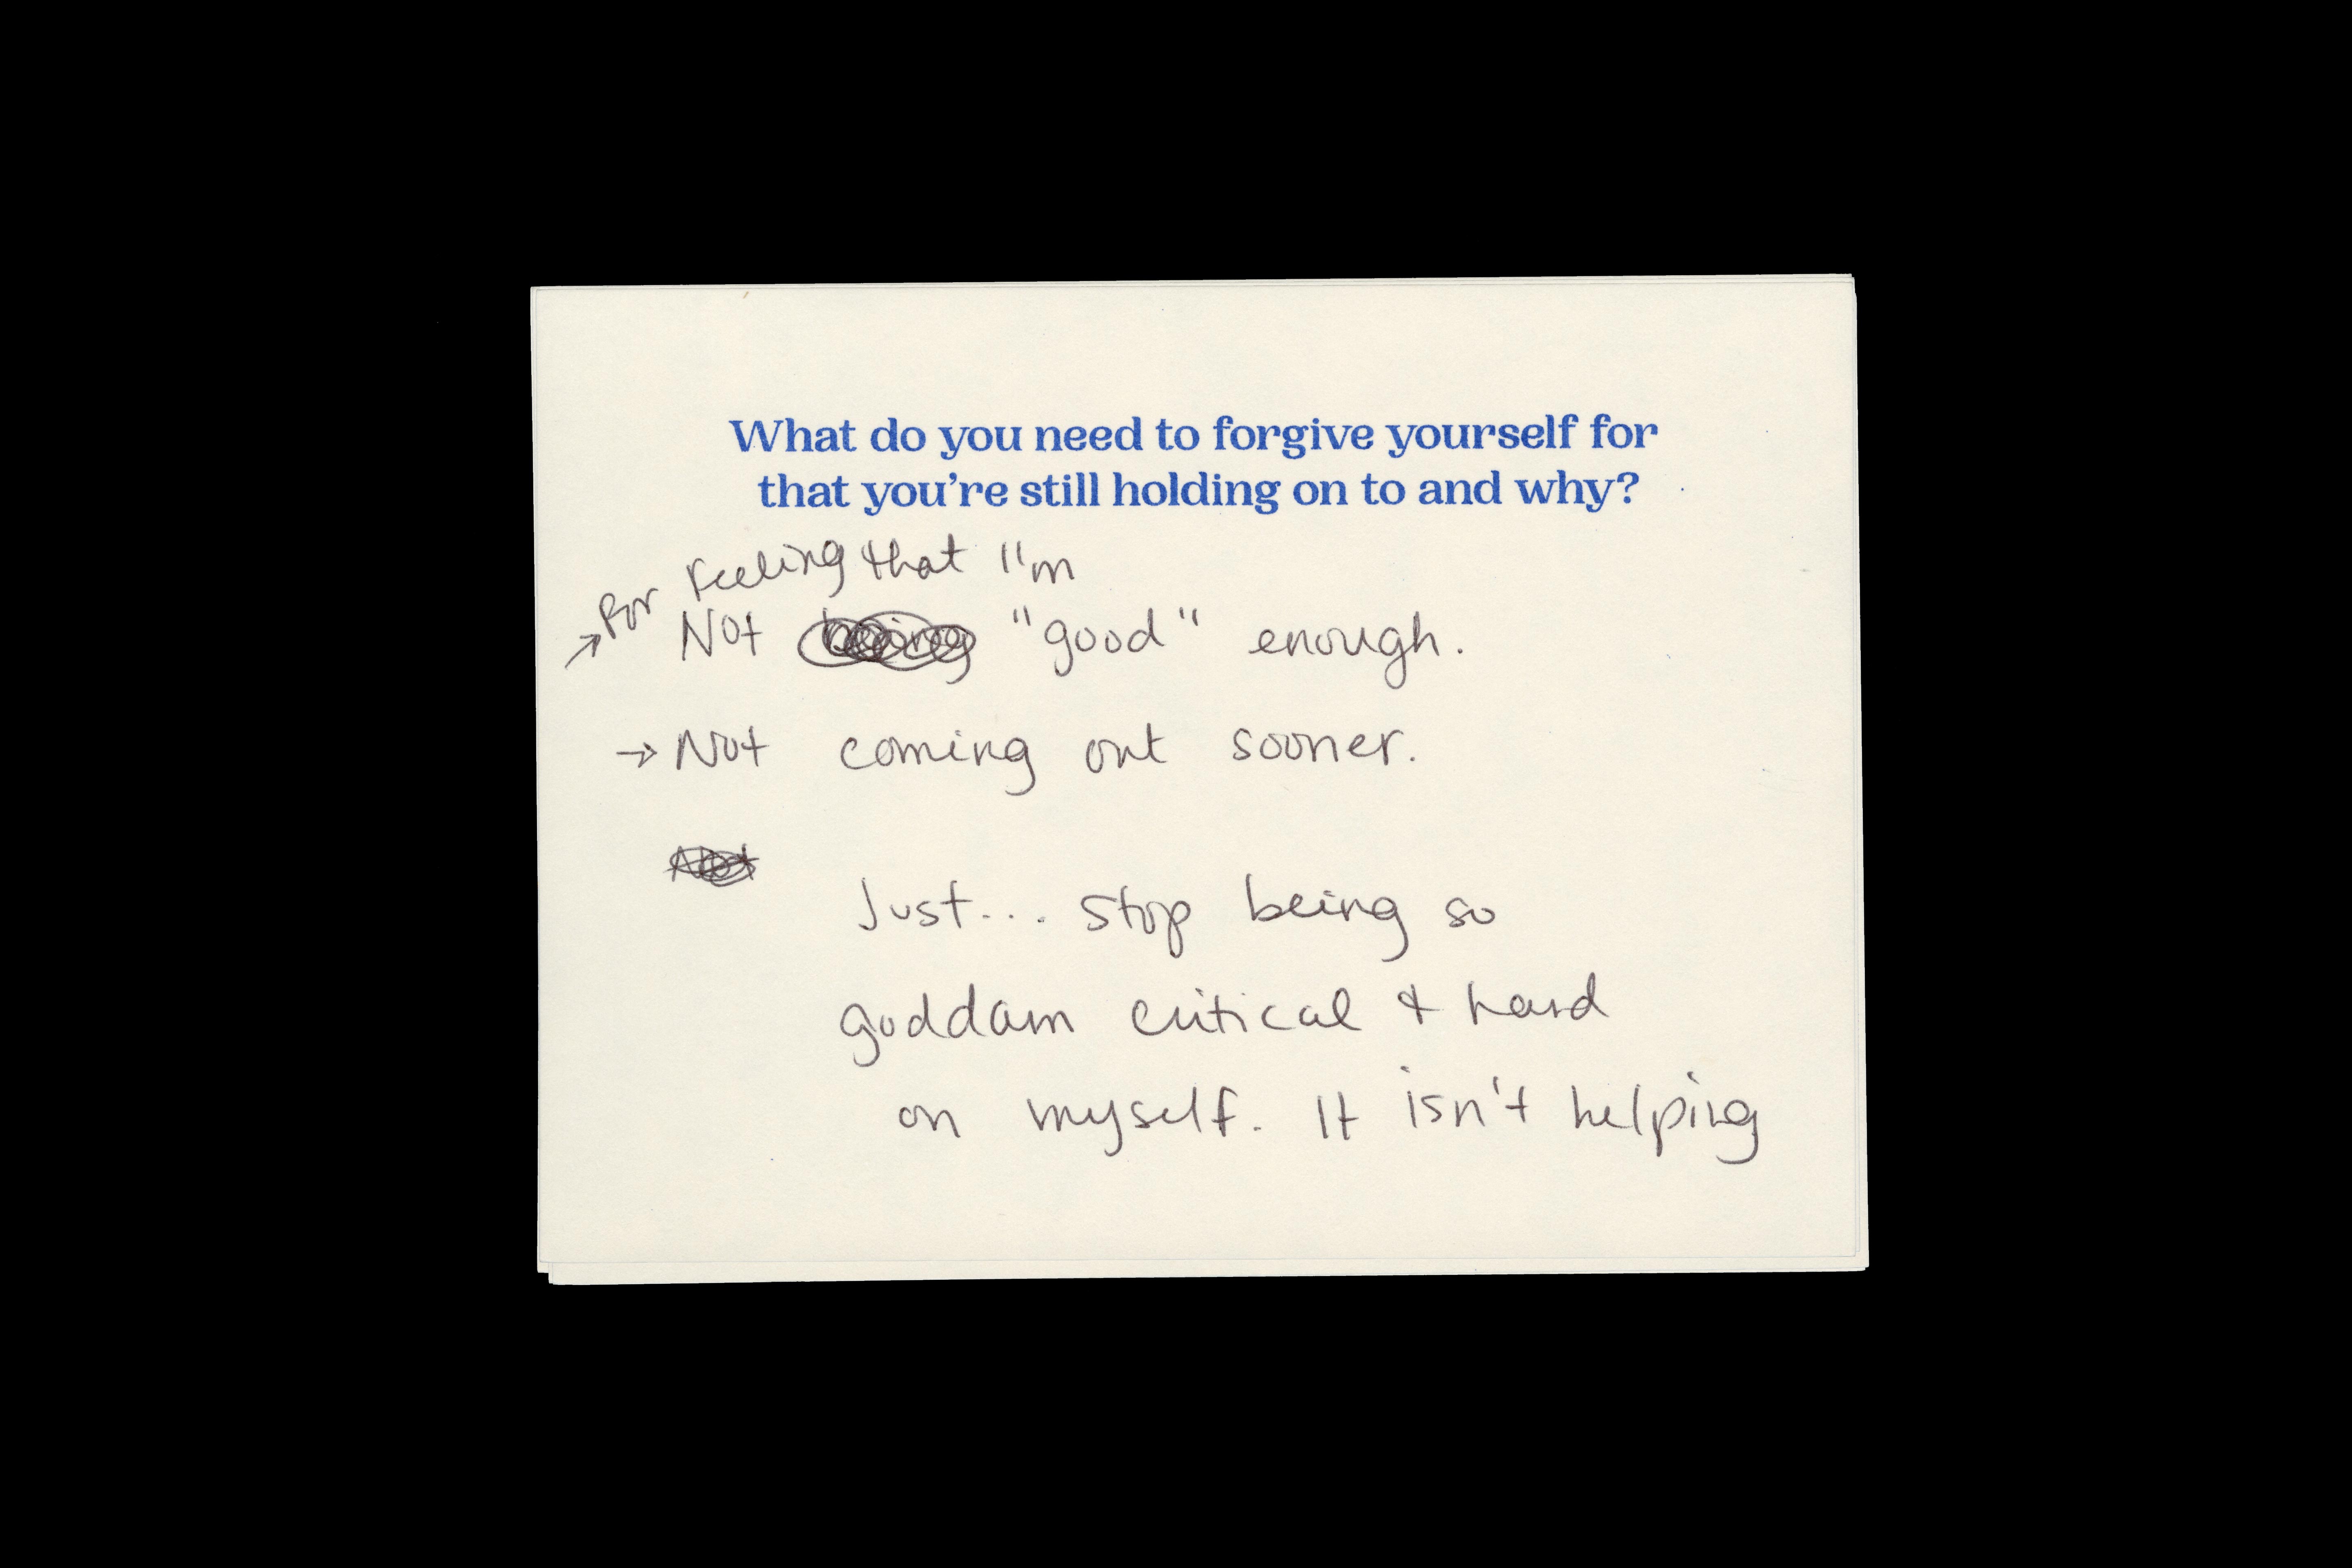 What do you need to forgive yourself for
that you're still holding on to and why?
→ For Feeling that I'm
Not "good" enough.
→ Not coming out sooner.
Just... stop being so
goddam critical & hard
on myself. It isn't helping